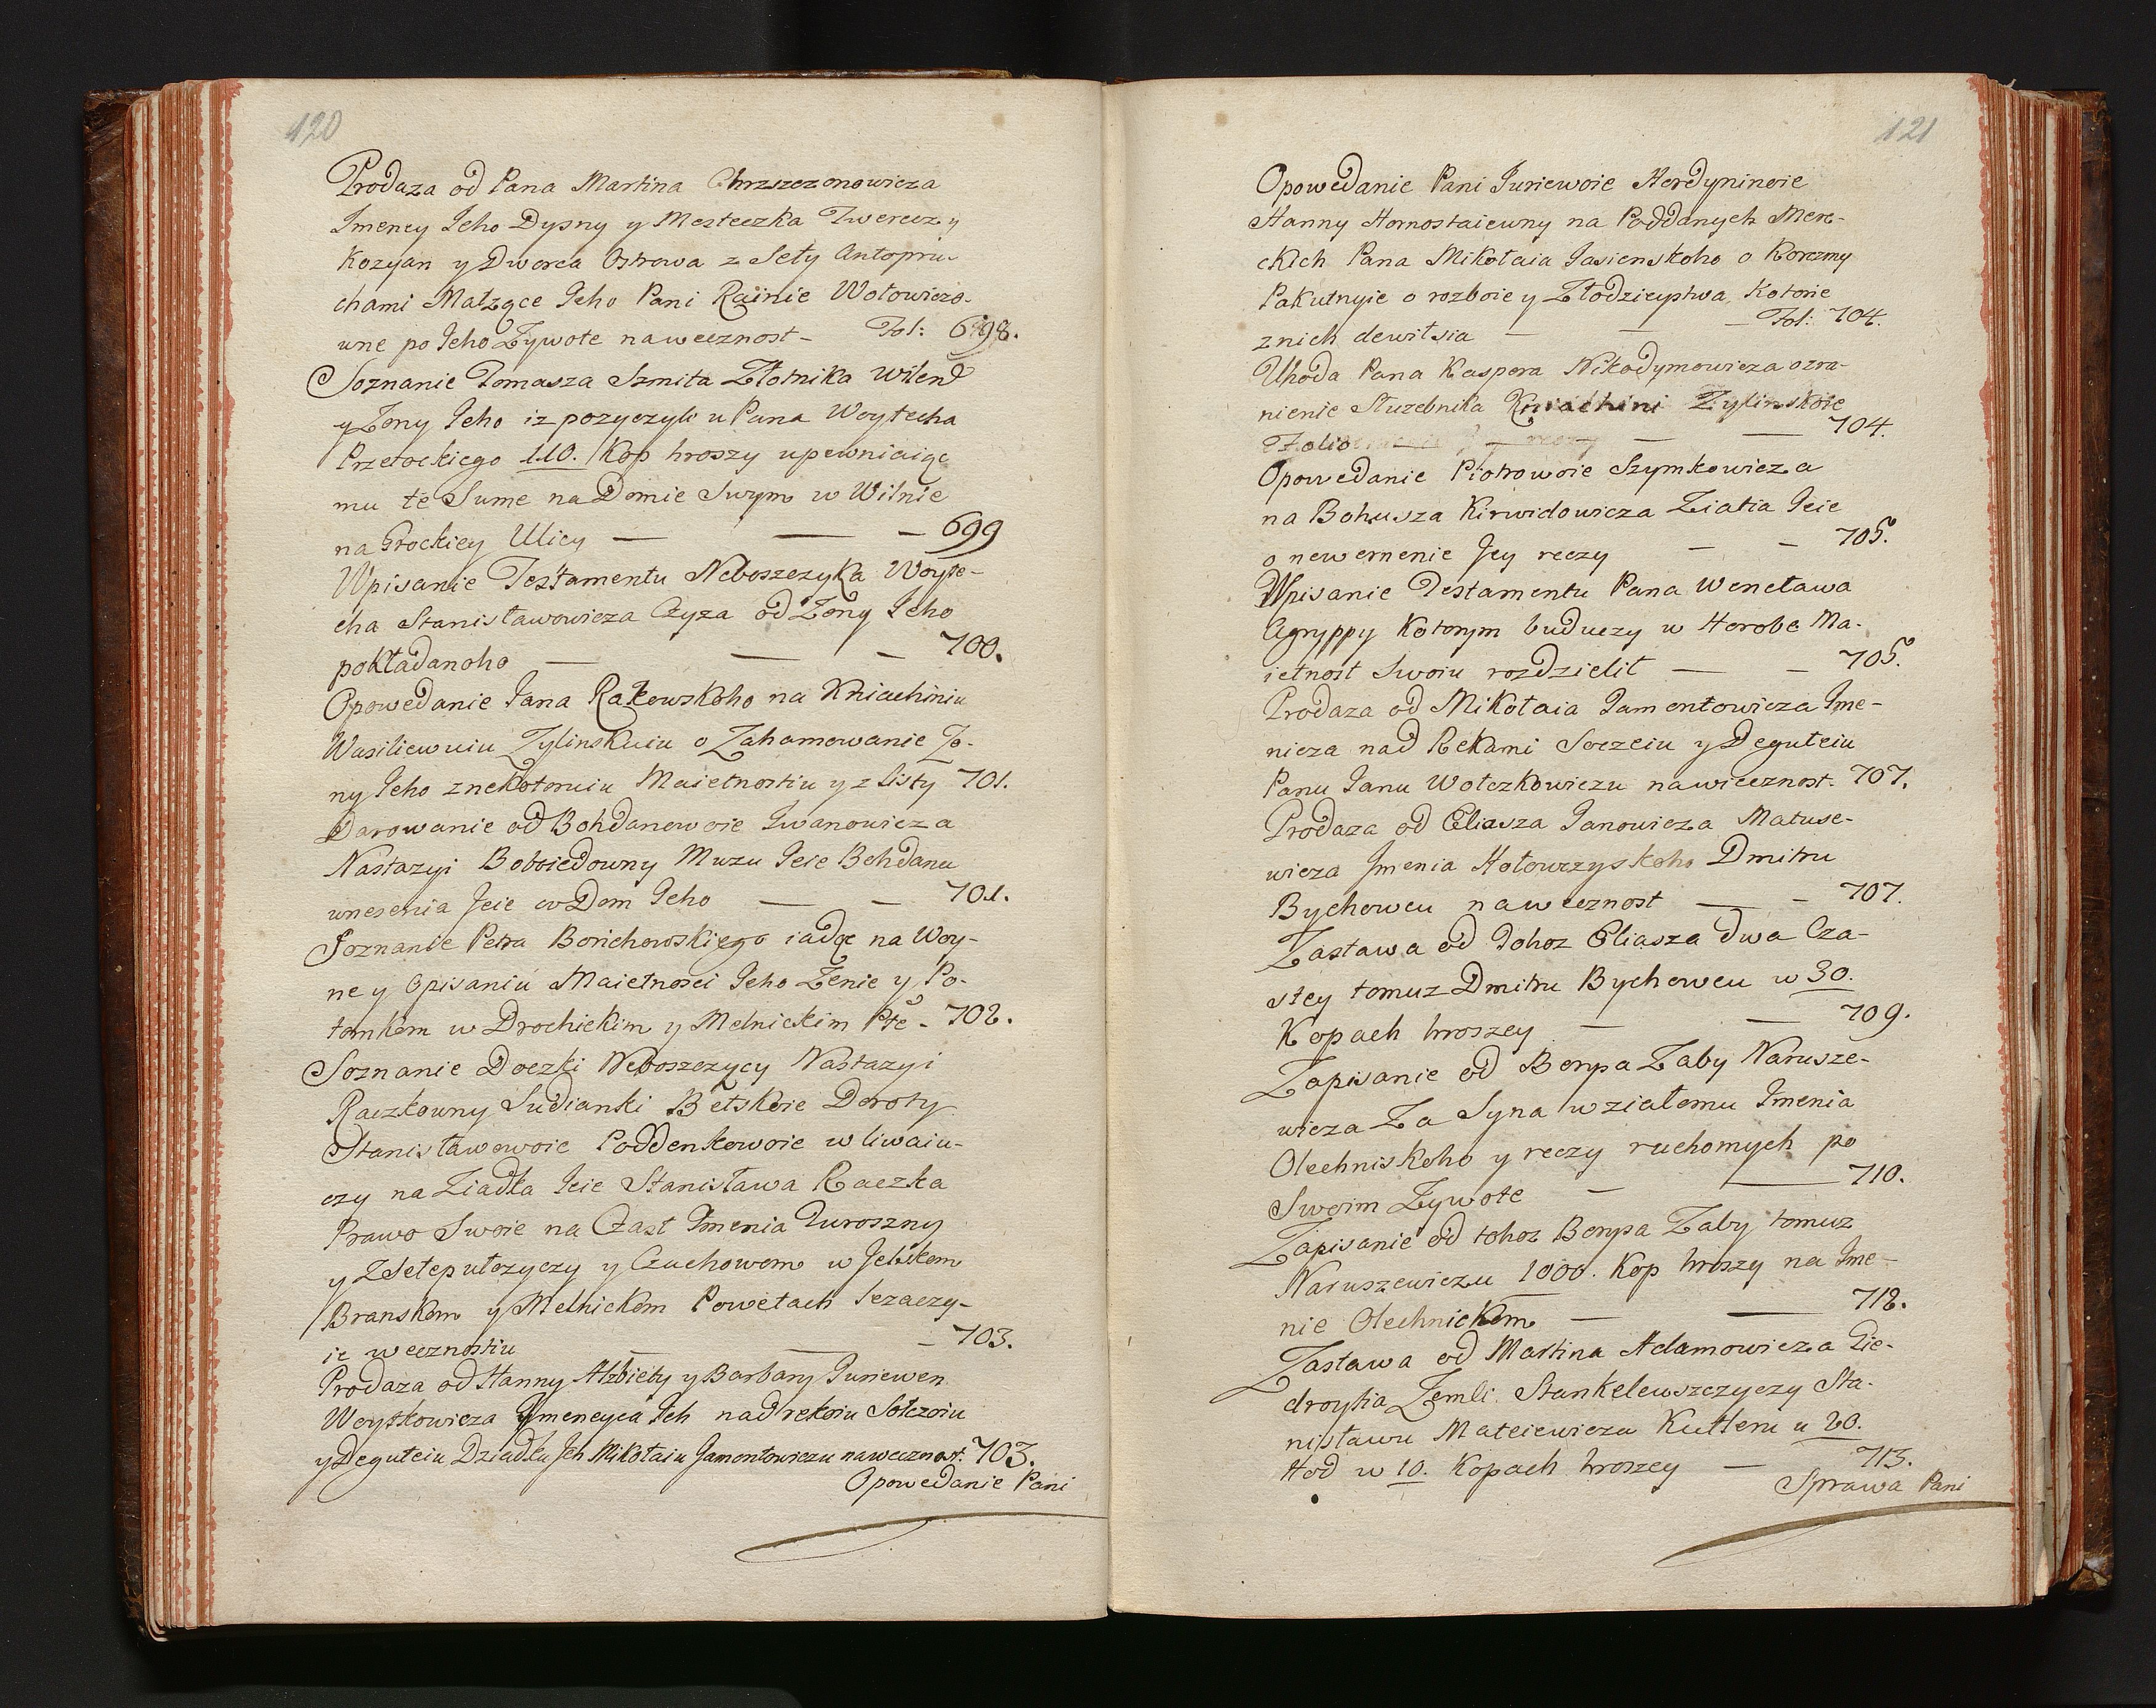 120
Prodaza od Pana Martina Chrzszczonowicza
Jmency Jeho Dysny y Mesteczka Twereczy
Kozyan y Dworca Ostrowa z Seły Antopru-
chami Małzące Jeho Pani Rainie Wołowiczo-
une po Jeho Zywote naweczność - Fol: 698.
Soznanie Tomasza Szmita Złotnika Wilend
y Zony Jeho iz pozyczyli u Pana Woytecha
Przetockiego 110. Kop hroszy upewniaiąc
mu te Sume na Domie Swym w Wilnie
na Trockiey Ulicy — — — 699
Wpisanie Testamentu Neboszczyka Woyte-
cha Stanisławowicza Czyza od Zony Jeho
pokładanoho — — — 700.
Opowedanie Jana Rakowskoho na Kniachiniu
Wasiliewuiu Zylinskuiu o Zahamowanie Zo-
ny Jeho z nekotoruiu Maietnostiu y z Listy 701.
Darowanie od Bohdanowoie Jwanowicza
Nastazyi Boboiedowny Muzu Jeie Bohdanu
wnesenia Jeie w Dom Jeho — — 701.
Soznanie Petra Borichowskiego iadąc na Woy-
ne y Opisaniu Maietnosci Jeho Zenie y Po-
tomkom w Drochickim y Melnickim Pte - 702.
Soznanie Doczki Neboszczycy Nastazyi
Raczkowny Sudianki Bełskoie Doroty
Stanisławowoie Poddenkowoie wliwaiu-
czy na Ziadka Jeie Stanisława Raczka
Prawo Swoie na Czast Jmenia Turoszny
y z Sełeputczyczy y Czuchowom w Jelskom
Branskom y Melnickom Powetach lezaczy-
ie wecznostiu — — — 703.
Prodaza od Hanny Alzbiety y Barbary Juriewen
Woytkowicza Jmeneyca Jch nad rekoiu Sołczoiu
y Deguteiu Dziadku Jch Mikołaiu Jamontowiczu nawecznost. 703.
Opowedanie Pani
121
Opowedanie Pani Juriewoie Hordyninoie
Hanny Hornostaiewny na Poddanych Mere-
ckich Pana Mikołaia Jasienskoho o Korczmy
Pakutnyie o rozboie y Złodzieystwa Kotorie
znich dewitsia — — — Fol: 704.
Uhoda Pana Kaspera Nikodymowicza ozra-
nienie Służebnika Kniachini Zylinskoie
Folio — — — 704.
Opowedanie Piotrowoie Szymkowicza
na Bohusza Kirwidowicza Ziatia Jeie
o newernenie Jey reczy — — 705.
Wpisanie Testamentu Pana Wencława
Agryppy Kotorym buduczy w Horobe Ma-
ietnost Swoiu rozdzielit — — 705.
Prodaza od Mikołaia Jamontowicza Jme-
nicza nad Rekami Soczciu y Deguteiu
Panu Janu Wołczkowiczu nawiecznost. 707.
Prodaza od Eliasza Janowicza Matuse-
wicza Jmenia Hołowczyskoho Dmitru
Bychowcu nawecznost — — 707.
Zastawa od Tohoz Eliasza dwa Cza-
stey tomuz Dmitru Bychowcu w 30.
Kopach hroszey — — 709.
Zapisanie od Borysa Zaby Narusze-
wicza Za Syna wziatomu Jmenia
Olechniskoho y reczy ruchomych po
Swoim Zywote — — 710.
Zapisanie od tohoz Borysa Zaby tomuz
Naruszewiczu 1000. Kop hroszy na Jme-
nie Olechnickom — — 712.
Zastawa od Martina Adamowicza Gie-
droytia Zemli Stankelewszczyczy Sta-
nisławu Mateiewiczu Kutleru u 20.
Hod w 10. Kopach hroszey — 713.
Sprawa Pani